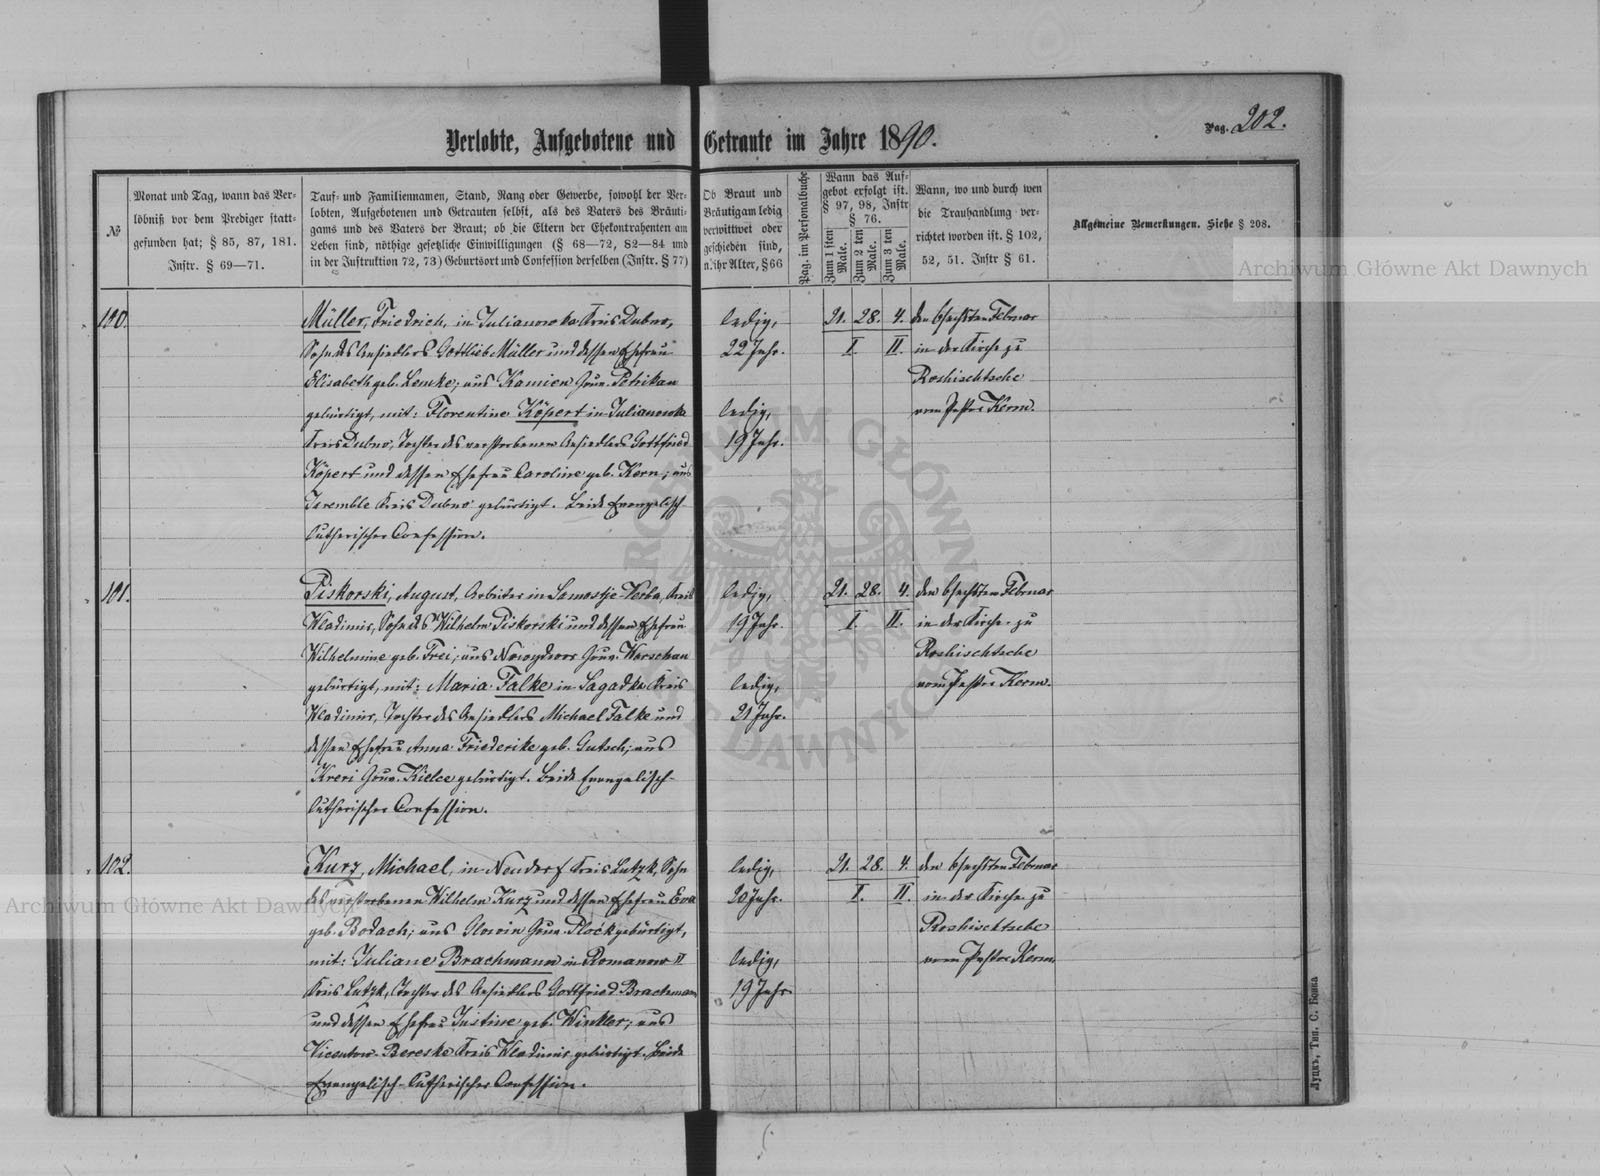 Verlobte, Aufgebotene und Getraute im Jahre 1890.
Pag. 202.
№
Monat und Tag, wann das Ver-
löbniß vor dem Prediger statt-
gefunden hat; § 85, 87, 181.
Instr. § 69—71.
Tauf- und Familiennamen, Stand, Rang oder Gewerbe, sowohl der Ver-
lobten, Aufgebotenen und Getrauten selbst, als des Vaters des Bräuti-
gams und des Vaters der Braut; ob die Eltern der Ehekontrahenten am
Leben sind, nöthige gesetzliche Einwilligungen (§ 68—72, 82—84 und
in der Instruktion 72, 73) Geburtsort und Confession derselben (Instr. § 77)
Ob Braut und
Bräutigam ledig
verwittwet oder
geschieden sind,
u. ihr Alter, § 66
Pag. im Personalbuche
Wann das Auf-
gebot erfolgt ist.
§ 97, 98, Instr
§ 76.
Zum 1 sten Male.
Zum 2 ten Male.
Zum 3 ten Male.
Wann, wo und durch wen
die Trauhandlung ver-
richtet worden ist. § 102,
52, 51. Instr § 61.
Allgemeine Bemerkungen. Siehe § 208.
100.
Müller, Friedrich, in Julianowka Kreis Dubno,
Sohn des Ansiedlers Gottlieb Müller und dessen Ehefrau
Elisabeth geb. Lemke; aus Kamien Gouv. Petrikau
gebürtigt, mit: Florentine Köpert in Julianowka
Kreis Dubno, Tochter des verstorbenen Ansiedlers Gottfried
Köpert und dessen Ehefrau Caroline geb. Kern; aus
Jeremble Kreis Dubno gebürtigt. Beide Evangelisch-
Lutherischer Confession.
ledig,
22 Jahr.
ledig,
19 Jahr.
21. 28. 4.
I. II.
den 6 sechsten Februar
in der Kirche zu
Roshischtsche
vom Pastor Kerm.
101.
Piskorski, August, Arbeiter in Samostje-Werba, Kreis
Wladimir, Sohn des Wilhelm Piskorski und dessen Ehefrau
Wilhelmine geb. Frei; aus Nowydwor Gouv. Warschau
gebürtigt, mit: Maria Falke in Sagadka Kreis
Wladimir, Tochter des Ansiedlers Michael Falke und
dessen Ehefrau Anna Friederike geb. Gutsch; aus
Kreri Gouv. Kielce gebürtigt. Beide Evangelisch-
Lutherischer Confession.
ledig,
19 Jahr.
ledig,
21 Jahr.
21. 28. 4.
I. II.
den 6 sechsten Februar
in der Kirche zu
Roshischtsche
vom Pastor Kerm.
102.
Kurz, Michael, in Neudorf Kreis Lutzk, Sohn
des verstorbenen Wilhelm Kurz und dessen Ehefrau Eva
geb. Bodach; aus Slowin Gouv. Plock gebürtigt,
mit: Juliane Brachmann in Romanow II
Kreis Lutzk, Tochter des Ansiedlers Gottfried Brachmann
und dessen Ehefrau Justine geb. Winkler; aus
Vicentow-Bereske Kreis Wladimir gebürtigt. Beide
Evangelisch-Lutherischer Confession.
ledig,
20 Jahr.
ledig,
19 Jahr.
21. 28. 4.
I. II.
den 6 sechsten Februar
in der Kirche zu
Roshischtsche
vom Pastor Kerm.
Луцкъ, Тип. С. Бонка
Archiwum Główne Akt Dawnych
Archiwum Główne Akt Dawnych
ARCHIWUM GŁÓWNE AKT DAWNYCH